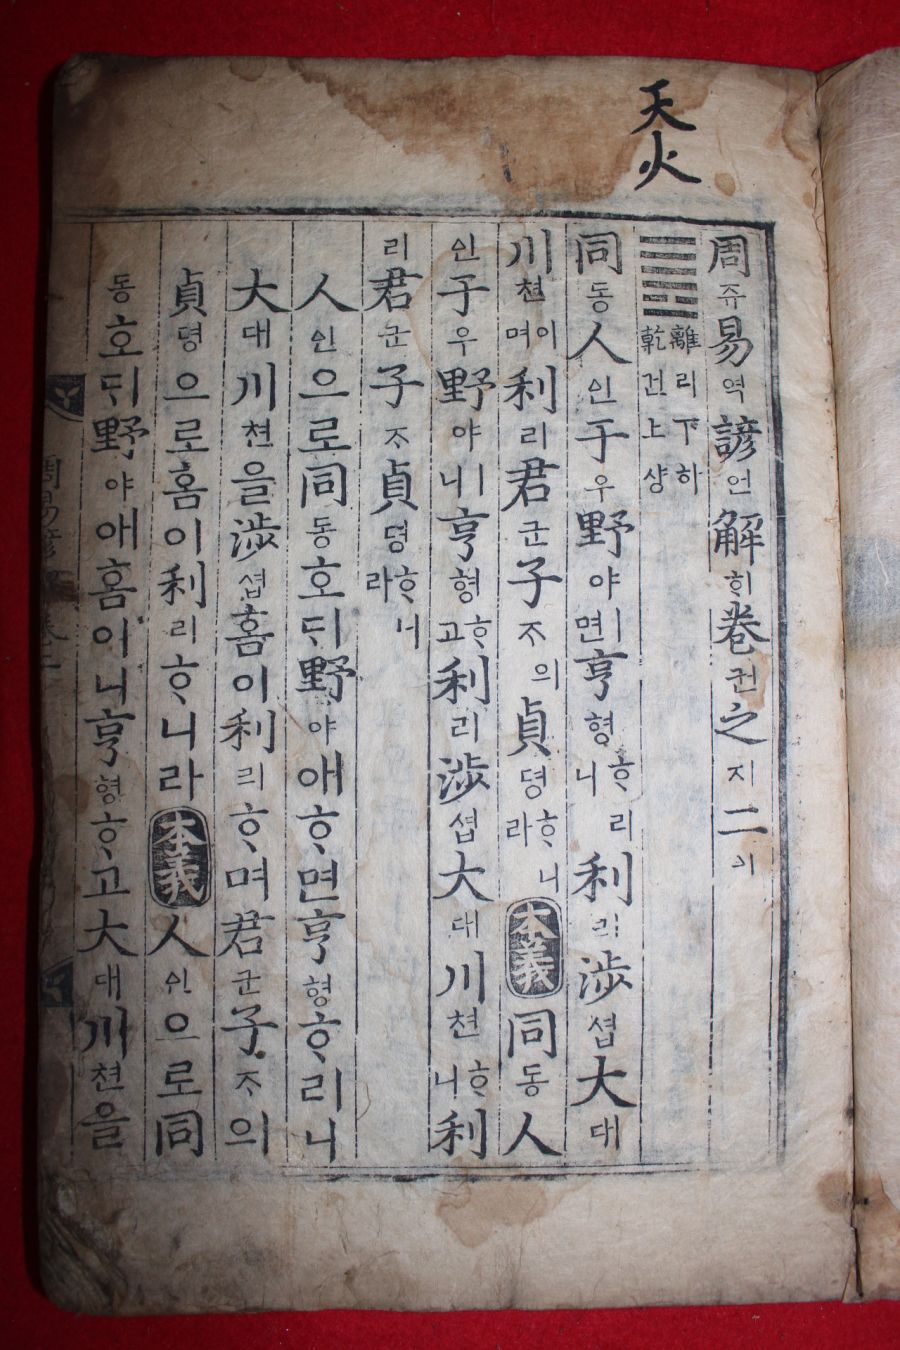 天火
周쥬易역諺언解ᄒᆡ卷권之지二이
離리下하乾건上샹
同동人인于우野야ㅣ면亨형ᄒᆞ리니利리涉셥大대
川쳔이며利리君군子ᄌᆞ의貞뎡ᄒᆞ니라本義同동人
인于우野야ㅣ니亨형ᄒᆞ고利리涉셥大대川쳔ᄒᆞ니利
리君군子ᄌᆞ貞뎡ᄒᆞ니라
人인으로同동호ᄃᆡ野야애ᄒᆞ면亨형ᄒᆞ리니
大대川쳔을涉셥홈이利리ᄒᆞ며君군子ᄌᆞ의
貞뎡으로홈이利리ᄒᆞ니라本義人인으로同
동호ᄃᆡ野야애홈이니亨형ᄒᆞ고大대川쳔을